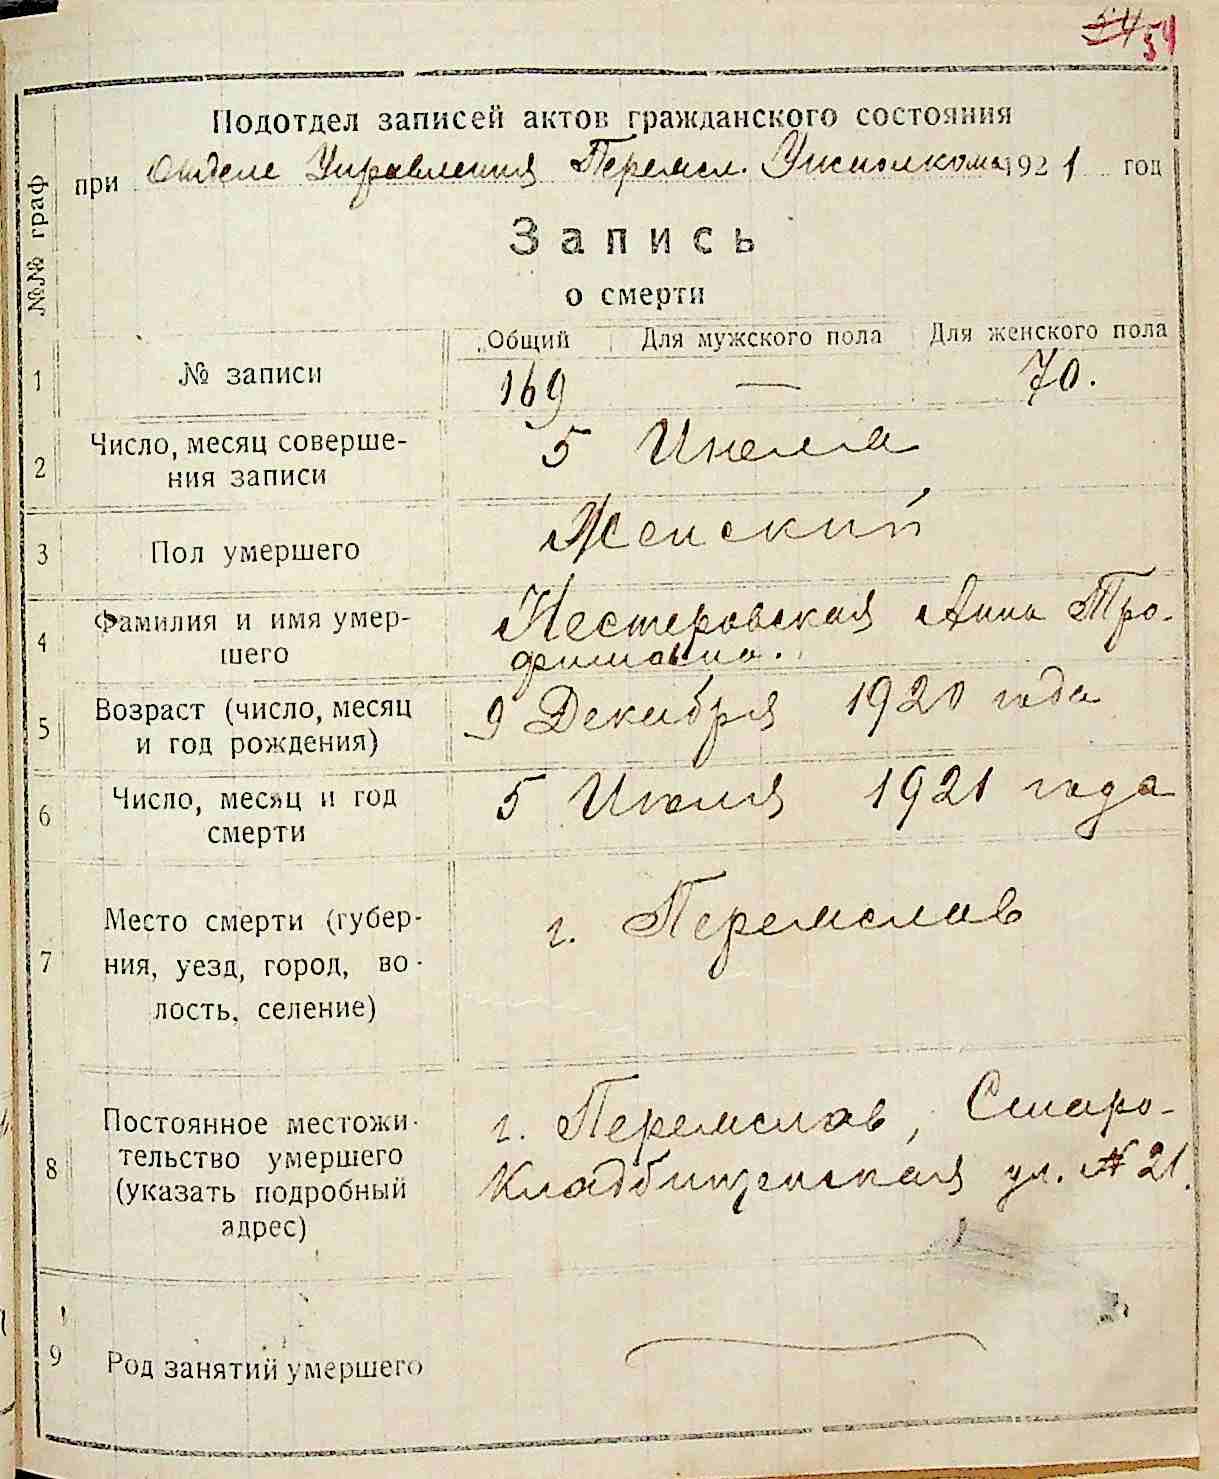 54 54
Подотдел записей актов гражданского состояния
при Отделе Управления Перемсл. Уисполкома 1921 год
№№ граф
Запись
о смерти
Общий Для мужского пола Для женского пола
1 № записи 169 — 70.
2 Число, месяц соверше- 5 Июля
ния записи
3 Пол умершего Женский
4 Фамилия и имя умер- Нестеровская Анна Тро-
шего фимовна.
5 Возраст (число, месяц 9 Декабря 1920 года
и год рождения)
6 Число, месяц и год 5 Июля 1921 года
смерти
7 Место смерти (губер- г. Перемслав
ния, уезд, город, во-
лость, селение)
8 Постоянное местожи- г. Перемслав, Старо-
тельство умершего Кладбищенская ул. № 21.
(указать подробный
адрес)
9 Род занятий умершего